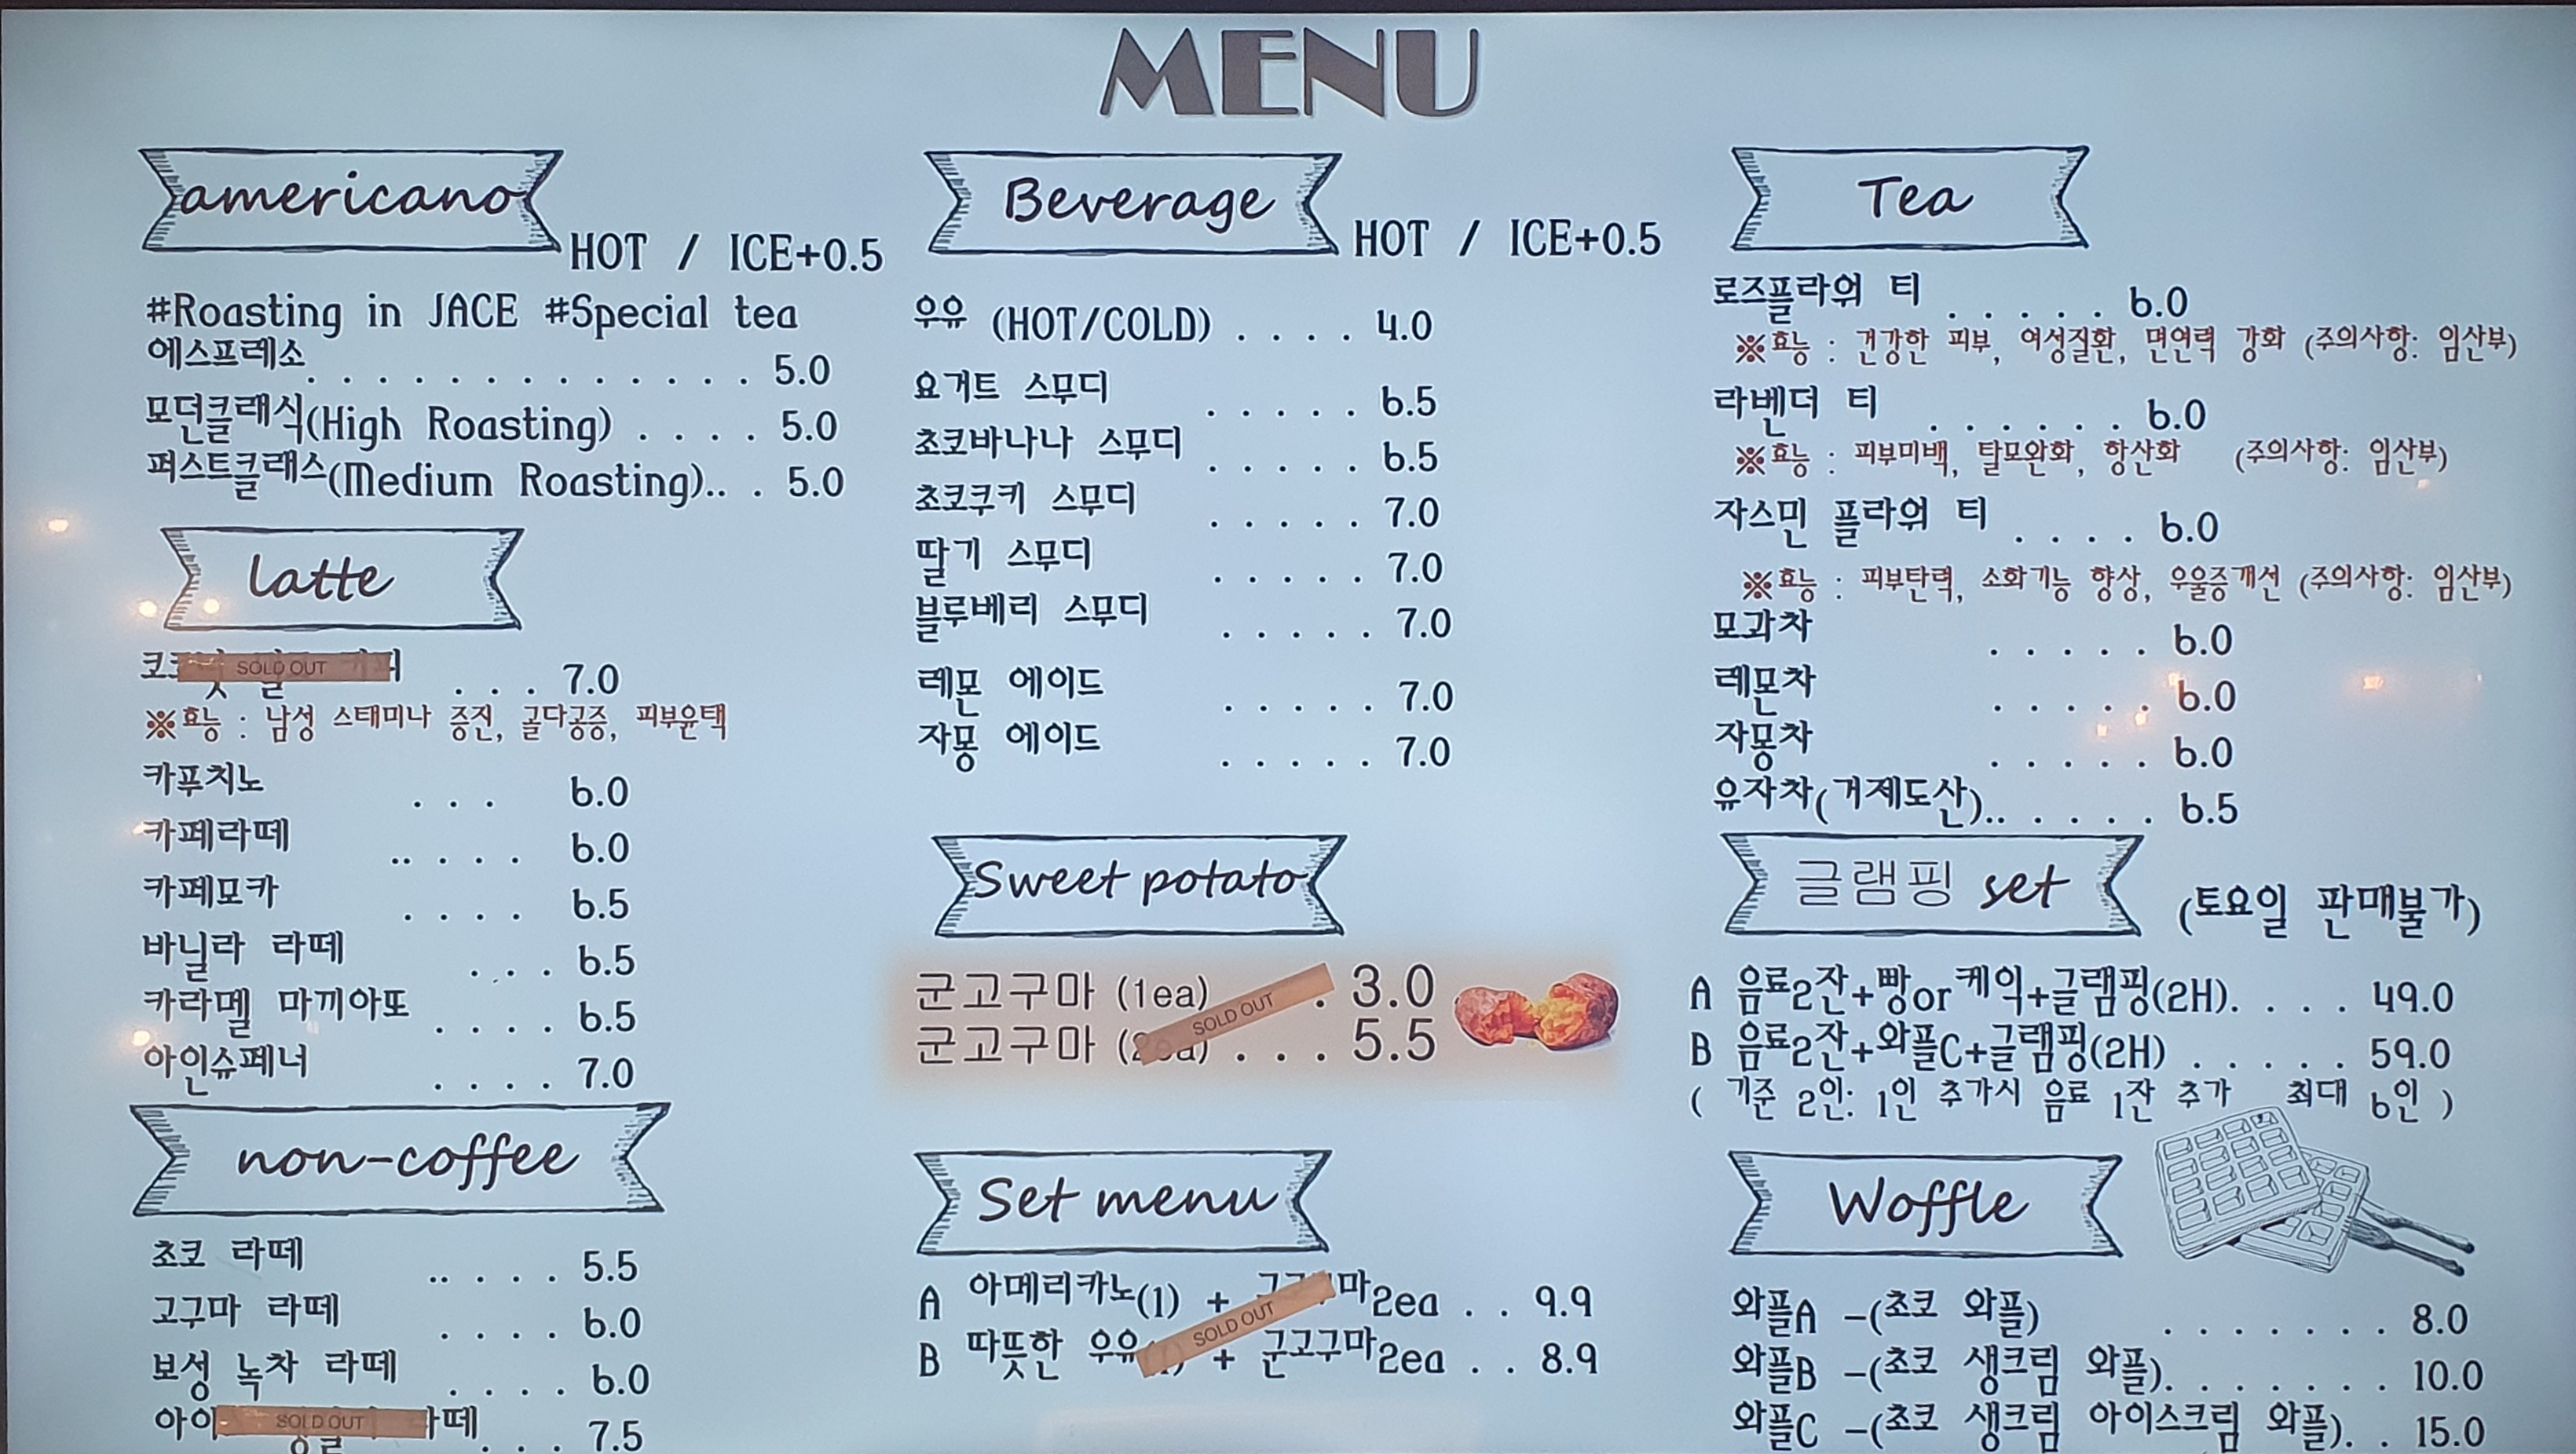 MENU
americano
HOT / ICE+0.5
#Roasting in JACE #Special tea
에스프레소 . . . . . . . . . . . . . 5.0
모던클래식(High Roasting) . . . . 5.0
퍼스트클래스(Medium Roasting).. . 5.0
latte
SOLD OUT . . . 7.0
※효능 : 남성 스태미나 증진, 골다공증, 피부윤택
카푸치노 . . . 6.0
카페라떼 .. . . . 6.0
카페모카 . . . . 6.5
바닐라 라떼 . . . 6.5
카라멜 마끼아또 . . . . 6.5
아인슈페너 . . . . 7.0
non-coffee
초코 라떼 .. . . . 5.5
고구마 라떼 . . . . 6.0
보성 녹차 라떼 . . . . 6.0
SOLD OUT 라떼 . . . 7.5
Beverage
HOT / ICE+0.5
우유 (HOT/COLD) . . . . 4.0
요거트 스무디 . . . . . 6.5
초코바나나 스무디 . . . . . 6.5
초코쿠키 스무디 . . . . . 7.0
딸기 스무디 . . . . . 7.0
블루베리 스무디 . . . . . 7.0
레몬 에이드 . . . . . 7.0
자몽 에이드 . . . . . 7.0
Sweet potato
군고구마 (1ea) . 3.0
SOLD OUT
군고구마 (2ea) . . . 5.5
Set menu
A 아메리카노(1) + 군고구마2ea . . 9.9
SOLD OUT
B 따뜻한 우유(1) + 군고구마2ea . . 8.9
Tea
로즈플라워 티 . . . . . 6.0
※효능 : 건강한 피부, 여성질환, 면연력 강화 (주의사항: 임산부)
라벤더 티 . . . . . . 6.0
※효능 : 피부미백, 탈모완화, 항산화 (주의사항: 임산부)
자스민 플라워 티 . . . . 6.0
※효능 : 피부탄력, 소화기능 향상, 우울증개선 (주의사항: 임산부)
모과차 . . . . . 6.0
레몬차 . . . . . 6.0
자몽차 . . . . . 6.0
유자차(거제도산).. . . . . 6.5
글램핑 set (토요일 판매불가)
A 음료2잔+빵or케익+글램핑(2H). . . . 49.0
B 음료2잔+와플C+글램핑(2H) . . . . . 59.0
( 기준 2인: 1인 추가시 음료 1잔 추가 최대 6인 )
Woffle
와플A -(초코 와플) . . . . . . . 8.0
와플B -(초코 생크림 와플). . . . . . . 10.0
와플C -(초코 생크림 아이스크림 와플). . 15.0